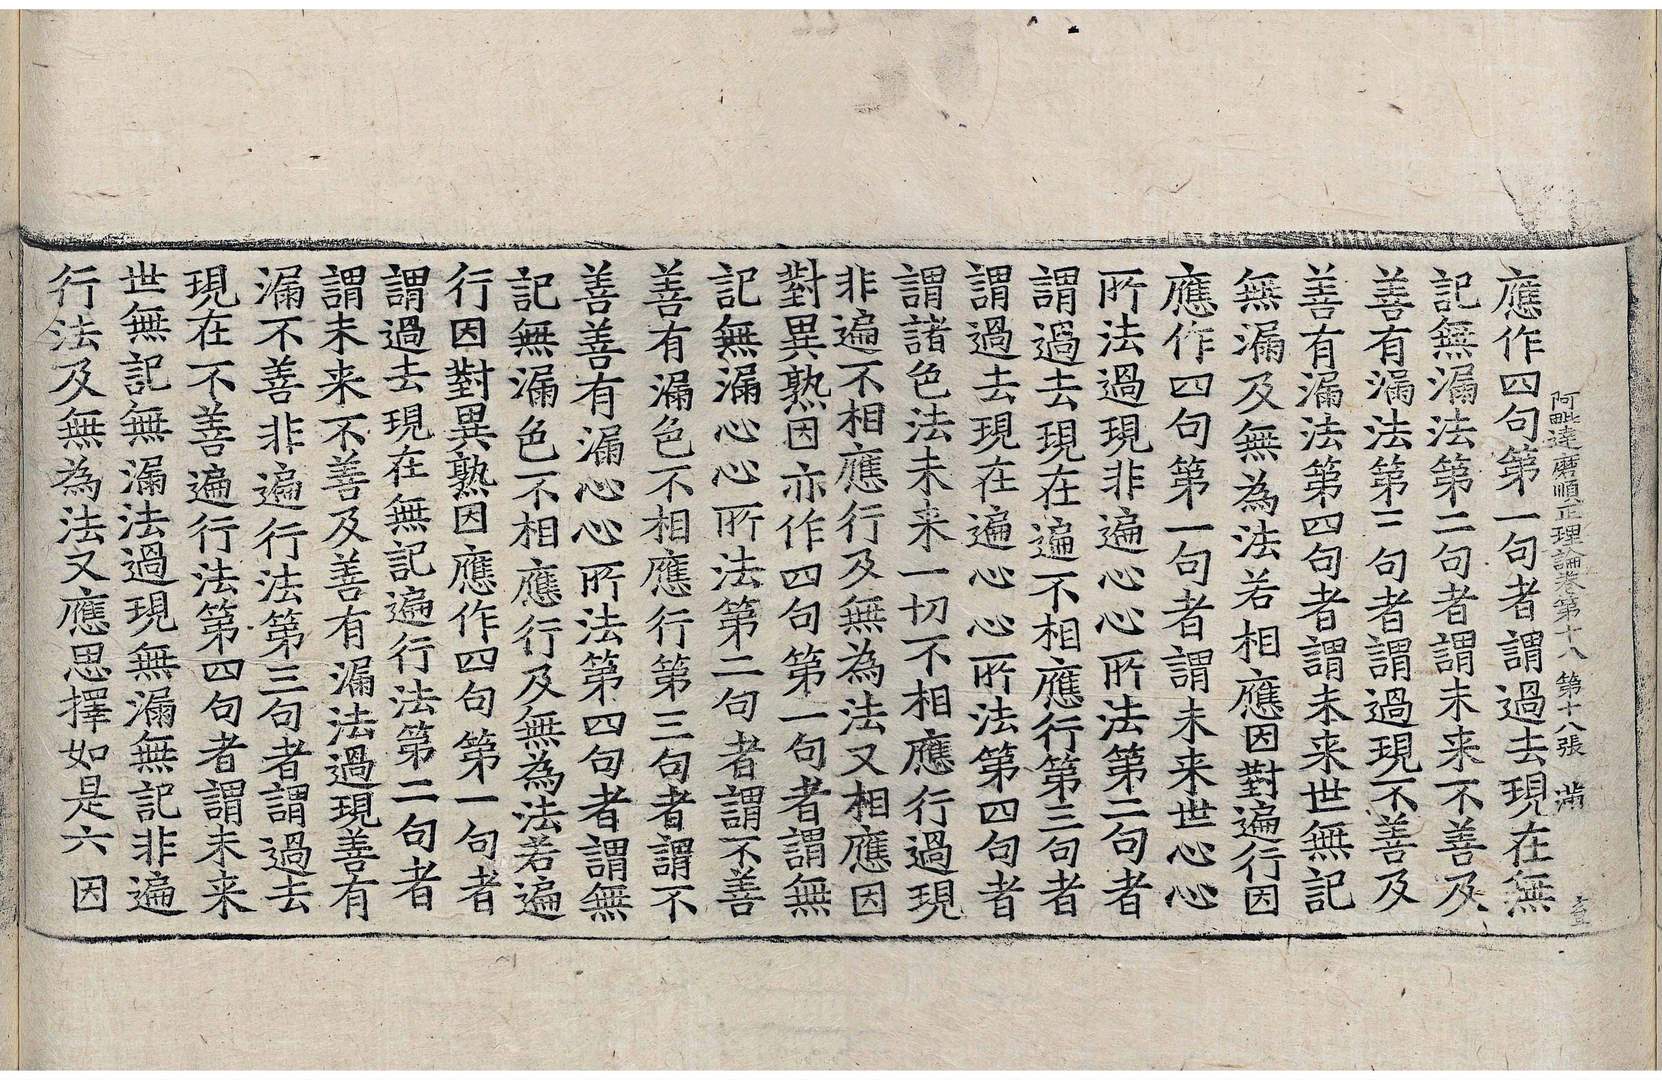 阿毗達磨順正理論卷第十八 第十八張 滿
應作四句第一句者謂過去現在無
記無漏法第二句者謂未来不善及
善有漏法第三句者謂過現不善及
善有漏法第四句者謂未来世無記
無漏及無為法若相應因對遍行因
應作四句第一句者謂未来世心心
所法過現非遍心心所法第二句者
謂過去現在遍不相應行第三句者
謂過去現在遍心心所法第四句者
謂諸色法未来一切不相應行過現
非遍不相應行及無為法又相應因
對異熟因亦作四句第一句者謂無
記無漏心心所法第二句者謂不善
善有漏色不相應行第三句者謂不
善善有漏心心所法第四句者謂無
記無漏色不相應行及無為法若遍
行因對異熟因應作四句第一句者
謂過去現在無記遍行法第二句者
謂未来不善及善有漏法過現善有
漏不善非遍行法第三句者謂過去
現在不善遍行法第四句者謂未来
世無記無漏法過現無漏無記非遍
行法及無為法又應思擇如是六因